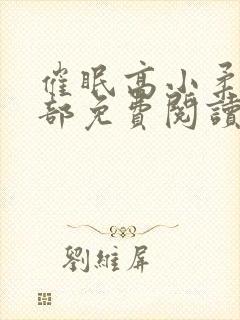 催眠高小柔
部免費閱讀
劉維屏